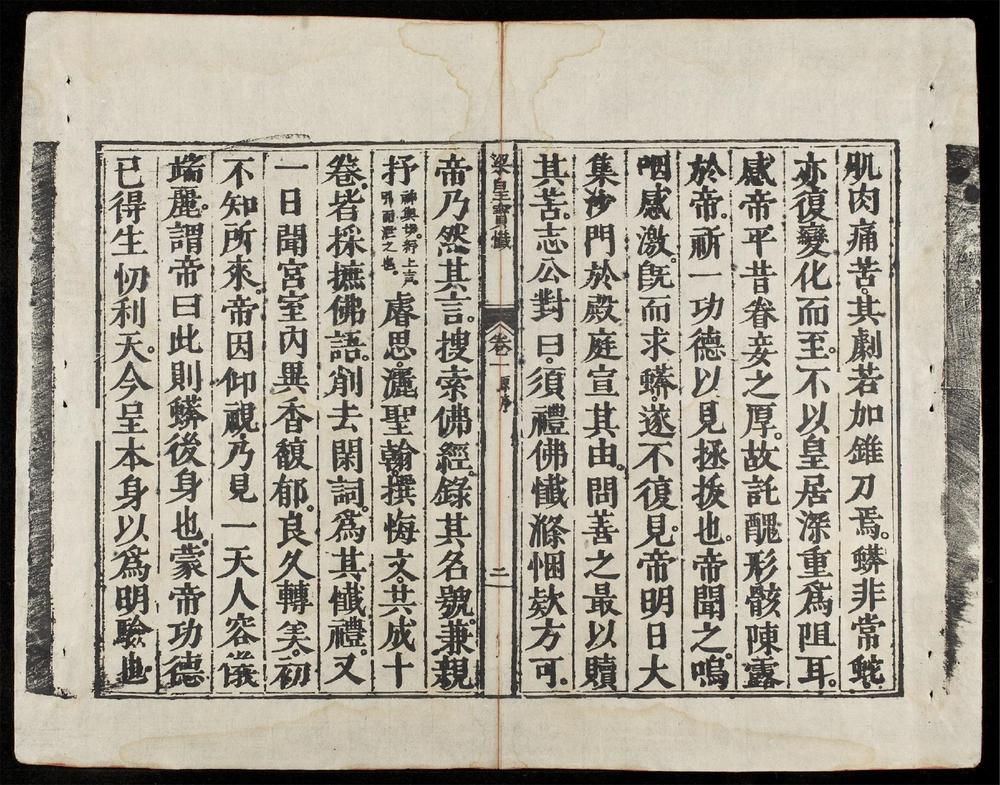 肌肉痛苦。其劇若加錐刀焉。蟒非常蛇
亦復變化而至。不以皇居深重爲阻耳。
感帝平昔眷妾之厚。故託醜形骸陳露
於帝。祈一功德以見拯拔也。帝聞之。嗚
咽感激。旣而求蟒。遂不復見。帝明日大
集沙門於殿庭宣其由。問善之最以贖
其苦。志公對曰。須禮佛懺滌悃欵方可。
梁皇寶懺 卷一 原序 二
帝乃然其言。搜索佛經。錄其名號。兼親
抒
睿思。灑聖翰。撰悔文。共成十
卷。皆採摭佛語。削去閑詞。爲其懺禮。又
一日聞宮室內異香馥郁。良久轉美。初
不知所來。帝因仰視。乃見一天人容儀
端麗。謂帝曰此則蟒後身也。蒙帝功德
已得生忉利天。今呈本身以爲明驗也